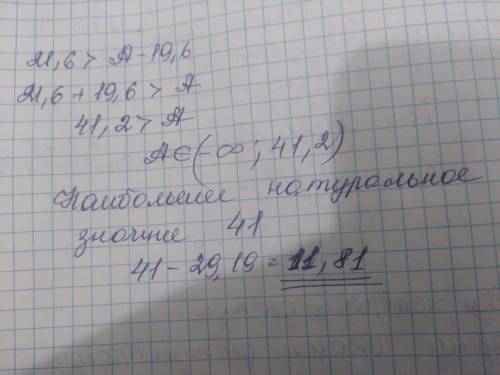 21,6 > A - 19,6
21,6 + 19,6 > A
41,2 > A
A ∈ (-∞; 41,2)
Наибольшее натуральное
значние 41
41 - 29,19 = 11,81